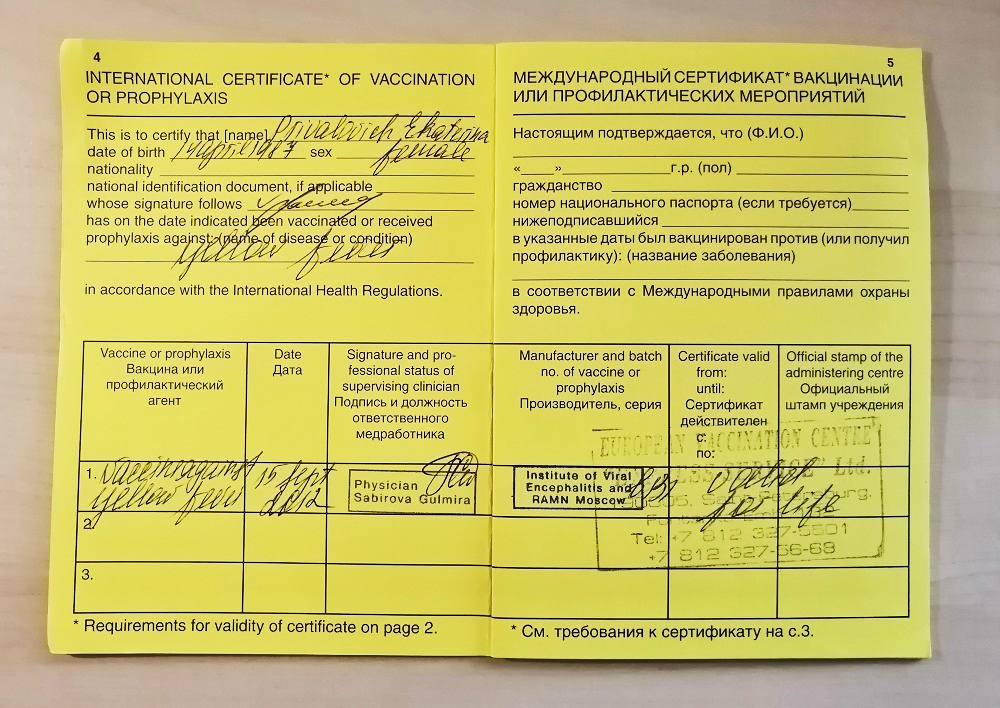 4
INTERNATIONAL CERTIFICATE* OF VACCINATION
OR PROPHYLAXIS
This is to certify that [name] Privalovich Ekaterina
date of birth 14 april 1987 sex female
nationality
national identification document, if applicable
whose signature follows
has on the date indicated been vaccinated or received
prophylaxis against: (name of disease or condition)
yellow fever
in accordance with the International Health Regulations.
5
МЕЖДУНАРОДНЫЙ СЕРТИФИКАТ* ВАКЦИНАЦИИ
ИЛИ ПРОФИЛАКТИЧЕСКИХ МЕРОПРИЯТИЙ
Настоящим подтверждается, что (Ф.И.О.)
«____»____________г.р. (пол)
гражданство
номер национального паспорта (если требуется)
нижеподписавшийся
в указанные даты был вакцинирован против (или получил
профилактику): (название заболевания)
в соответствии с Международными правилами охраны
здоровья.
Vaccine or prophylaxis
Вакцина или
профилактический
агент
Date
Дата
Signature and pro-
fessional status of
supervising clinician
Подпись и должность
ответственного
медработника
Manufacturer and batch
no. of vaccine or
prophylaxis
Производитель, серия
Certificate valid
from:
until:
Сертификат
действителен
с:
по:
Official stamp of the
administering centre
Официальный
штамп учреждения
1. Vaccin against
yellow fever
15 sept
2012
Physician
Sabirova Gulmira
Institute of Viral
Encephalitis and
RAMN Moscow
for life
EUROPEAN VACCINATION CENTRE
Ltd.
Tel: +7 812 327-5501
+7 812 327-56-68
2.
3.
* Requirements for validity of certificate on page 2.
* См. требования к сертификату на с.3.